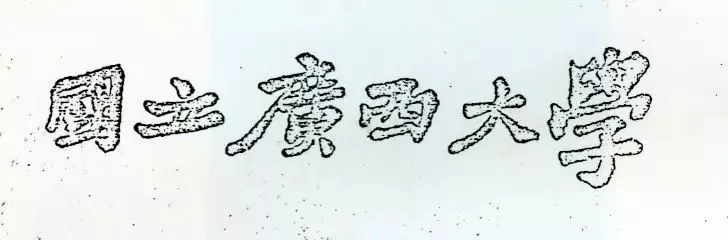 國立廣西大學